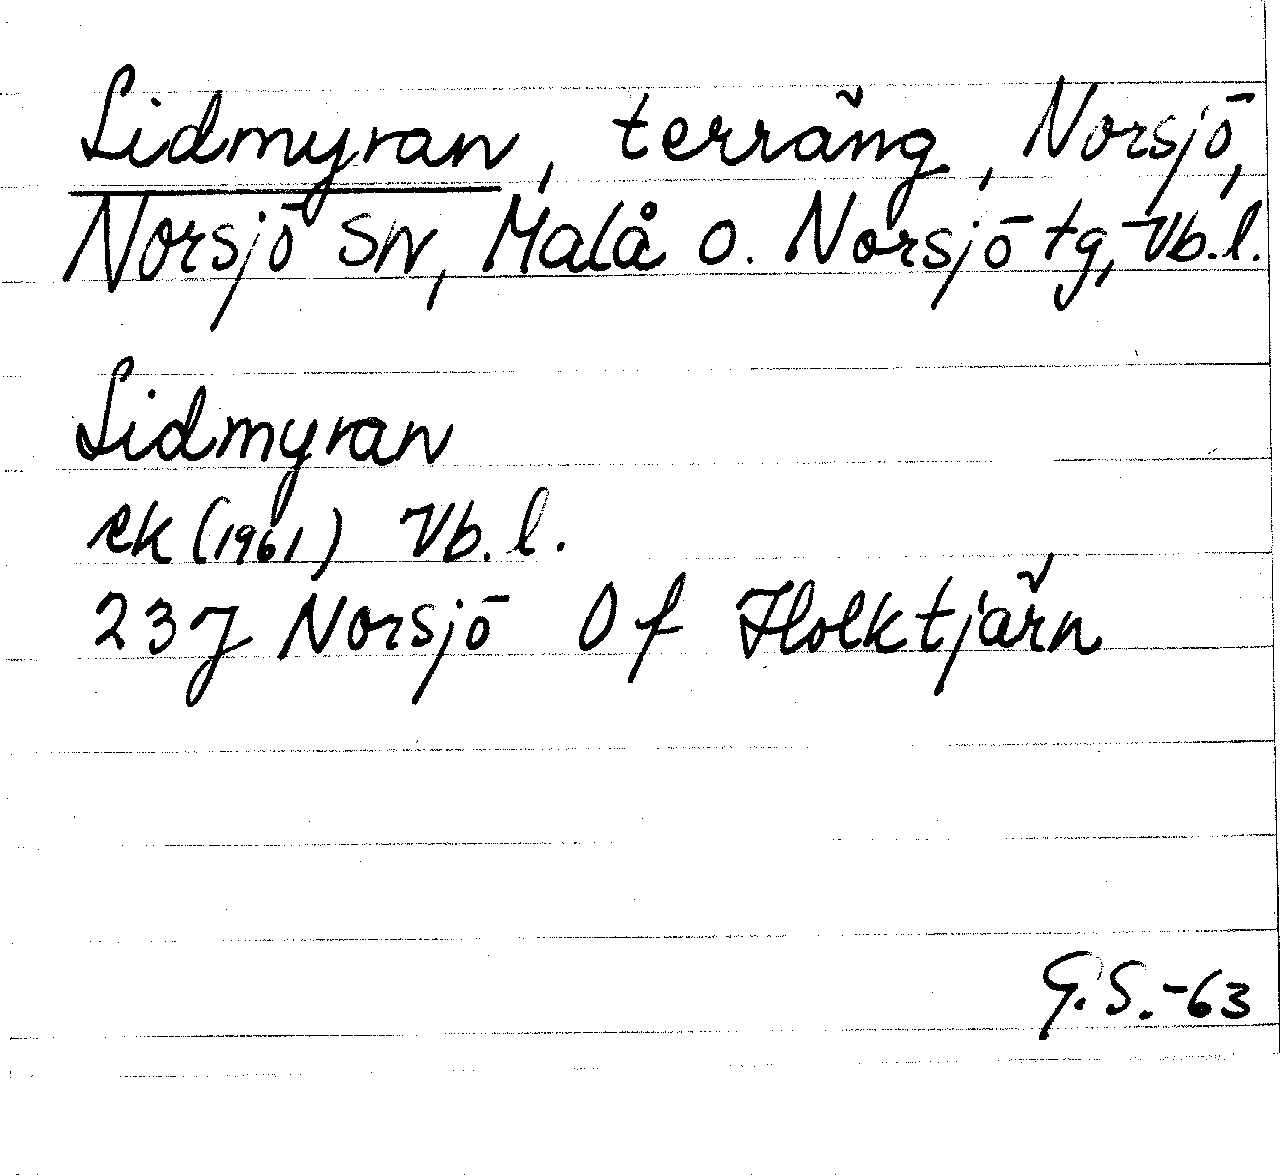 Lidmyran, terräng, Norsjö,
Norsjö sn, Malå o. Norsjö tg, Vb.l.
Lidmyran
ek (1961) Vb. l.
23J Norsjö Of Holktjärn
G.S.-63